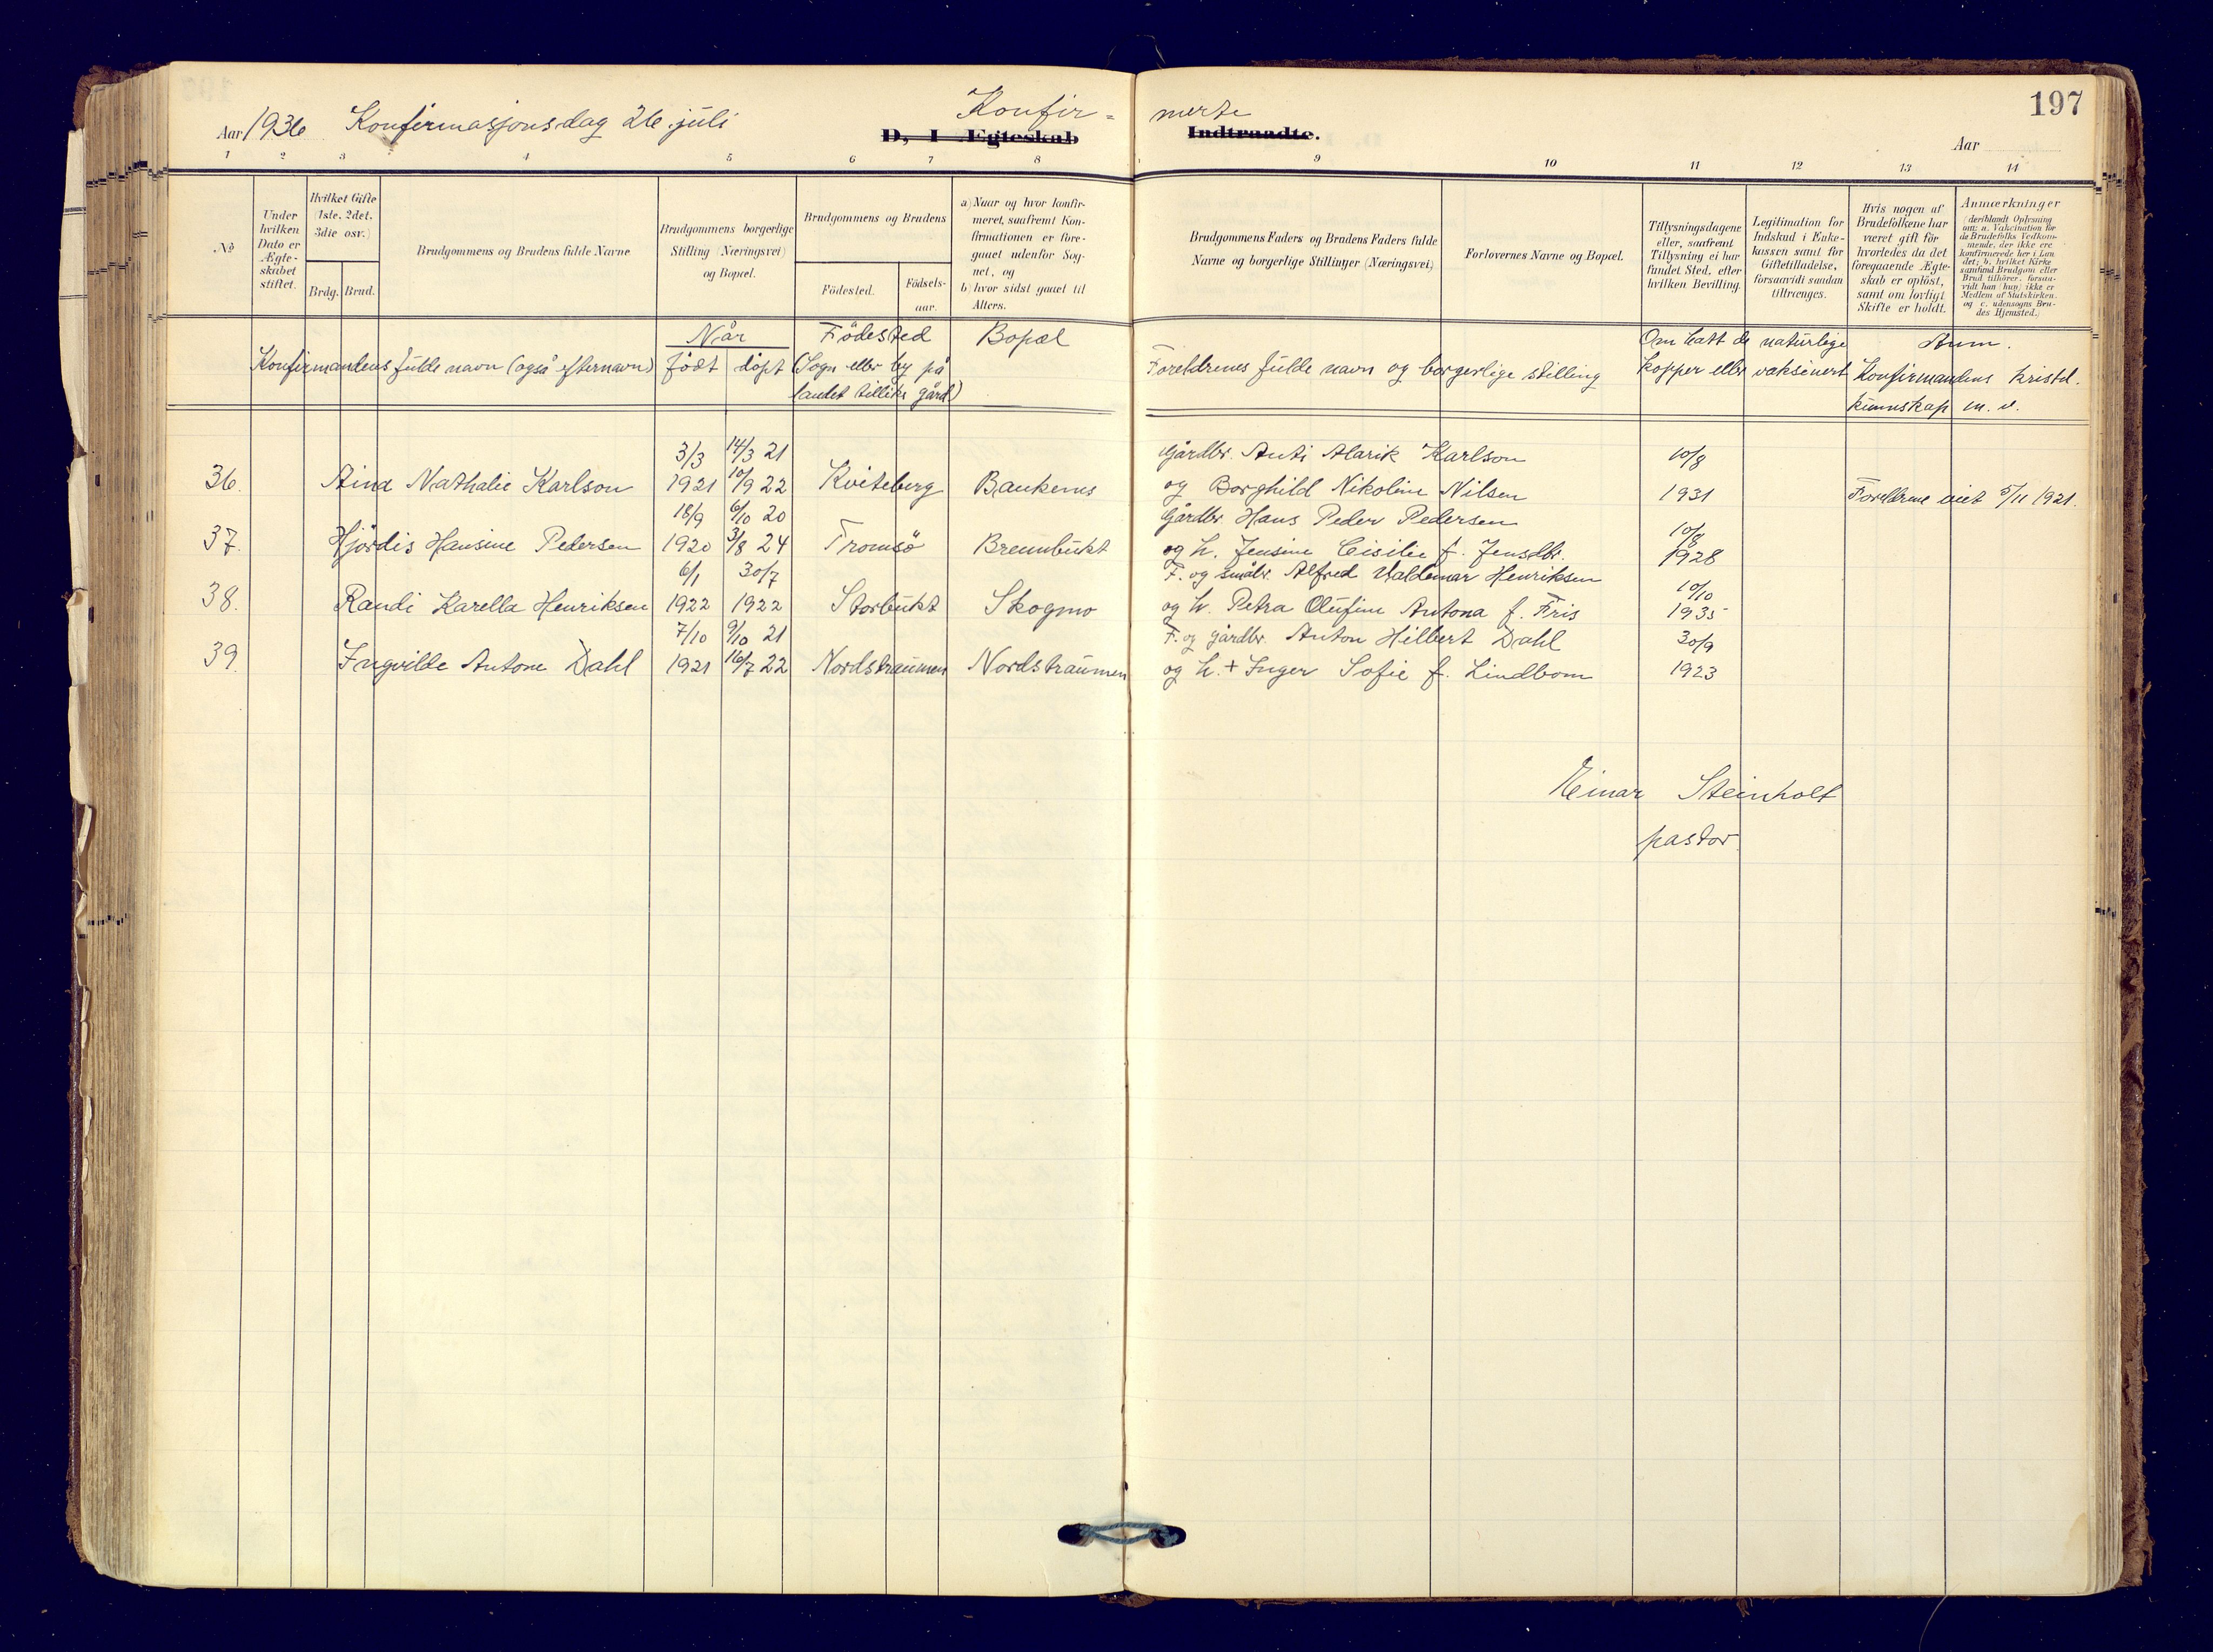 197
Aar 1936 Konfirmasjonsdag 26. juli
Konfir= merte
D, I Ægteskab Indtraadte.
Aar
1 2 3 4 5 6 7 8 9 10 11 12 13 14
No
Under hvilken Dato er Ægteskabet stiftet.
Hvilket Gifte (1ste. 2det. 3die osv.)
Brdg. Brud.
Brudgommens og Brudens fulde Navne
Brudgommens borgerlige Stilling (Næringsvei) og Bopæl.
Brudgommens og Brudens
Födested.
Födsels-aar.
a) Naar og hvor konfir-
meret, saafremt Kon-
firmationen er fore-
gaaet udenfor Sog-
net, og
b) hvor sidst gaaet til
Alters.
Brudgommens Faders og Brudens Faders fulde
Navne og borgerlige Stillinger (Næringsvei)
Forlovernes Navne og Bopæl.
Tillysningsdagene
eller, saafremt
Tillysning ei har
fundet Sted, efter
hvilken Bevilling.
Legitimation for
Indskud i Enke-
kassen samt for
Giftetilladelse,
forsaavidt saadan
tiltrænges.
Hvis nogen af
Brudefolkene har
været gift för
hvorledes da det
foregaaende Ægte-
skab er oplöst,
samt om lovligt
Skifte er holdt.
Anmærkninger
(deriblandt Oplysning
om: a. Vakcination för
de Brudefolks Vedkom-
mende, der ikke ere
konfirmerede her i Lan
det; b. hvilket Kirke
samfund Brudgom eller
Brud tilhörer, forsaa-
vidt han (hun) ikke er
Medlem af Statskirken.
og c. udensogns Bru-
des Hjemsted.)
Når Födested Bopæl Om hatt de naturlige Anm.
Konfirmandens fulde navn (også efternavn) född döpt (Sogn eller by på Foreldrenes fulde navn og borgerlige stilling kopper eller vaksinert Konfirmandens kristd.
landet tillike gård) kunnskap m. v.
3/3 14/3 21 Gårdbr. Anti Alarik Karlson 10/8
36. Aina Nathalie Karlson 1921 10/9 22 Kviteberg Baukenes og Borghild Nikoline Nilsen 1931 Foreldrene viet 5/11 1921.
18/9 6/10 20 Gårdbr. Hans Peder Pedersen 10/8
37. Hjördis Hansine Pedersen 1920 3/8 24 Tromsö Brennbukt og h. Jensine Cisilie f. Jensdtr. 1928
6/1 30/7 F. og småbr. Alfred Valdemar Henriksen 10/10
38. Randi Karella Henriksen 1922 1922 Storbukt Skogmo og h. Petra Olufine Antona f. Fris 1935
7/10 9/10 21 F. og gårdbr. Anton Hilbert Dahl 30/9
39. Ingvilde Antone Dahl 1921 16/7 22 Nordstraumen Nordstraumen og h. + Inger Sofie f. Lindbom 1923
Einar Steinholt
pastor